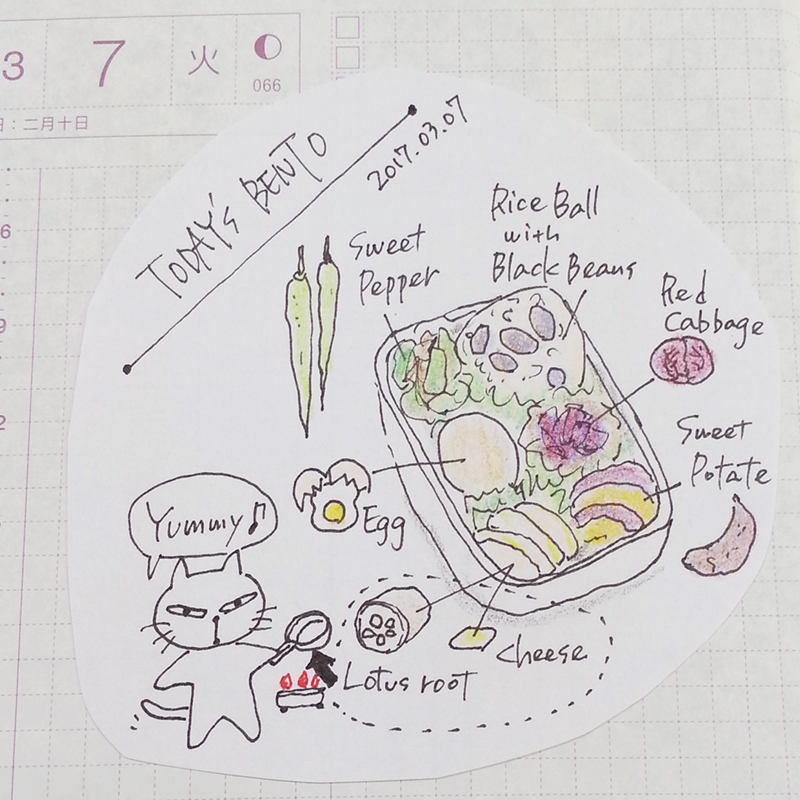 3
7
火
066
日:二月十日
6
9
2
TODAY's BENTO
2017.03.07
Sweet
Pepper
Rice Ball
with
Black Beans
Red
Cabbage
Sweet
Potate
Egg
Yummy♫
Cheese
Lotus root